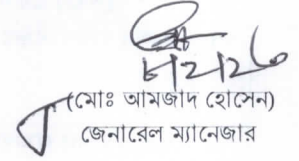 (মোঃ আমজাদ হোসেন)
জেনারেল ম্যানেজার